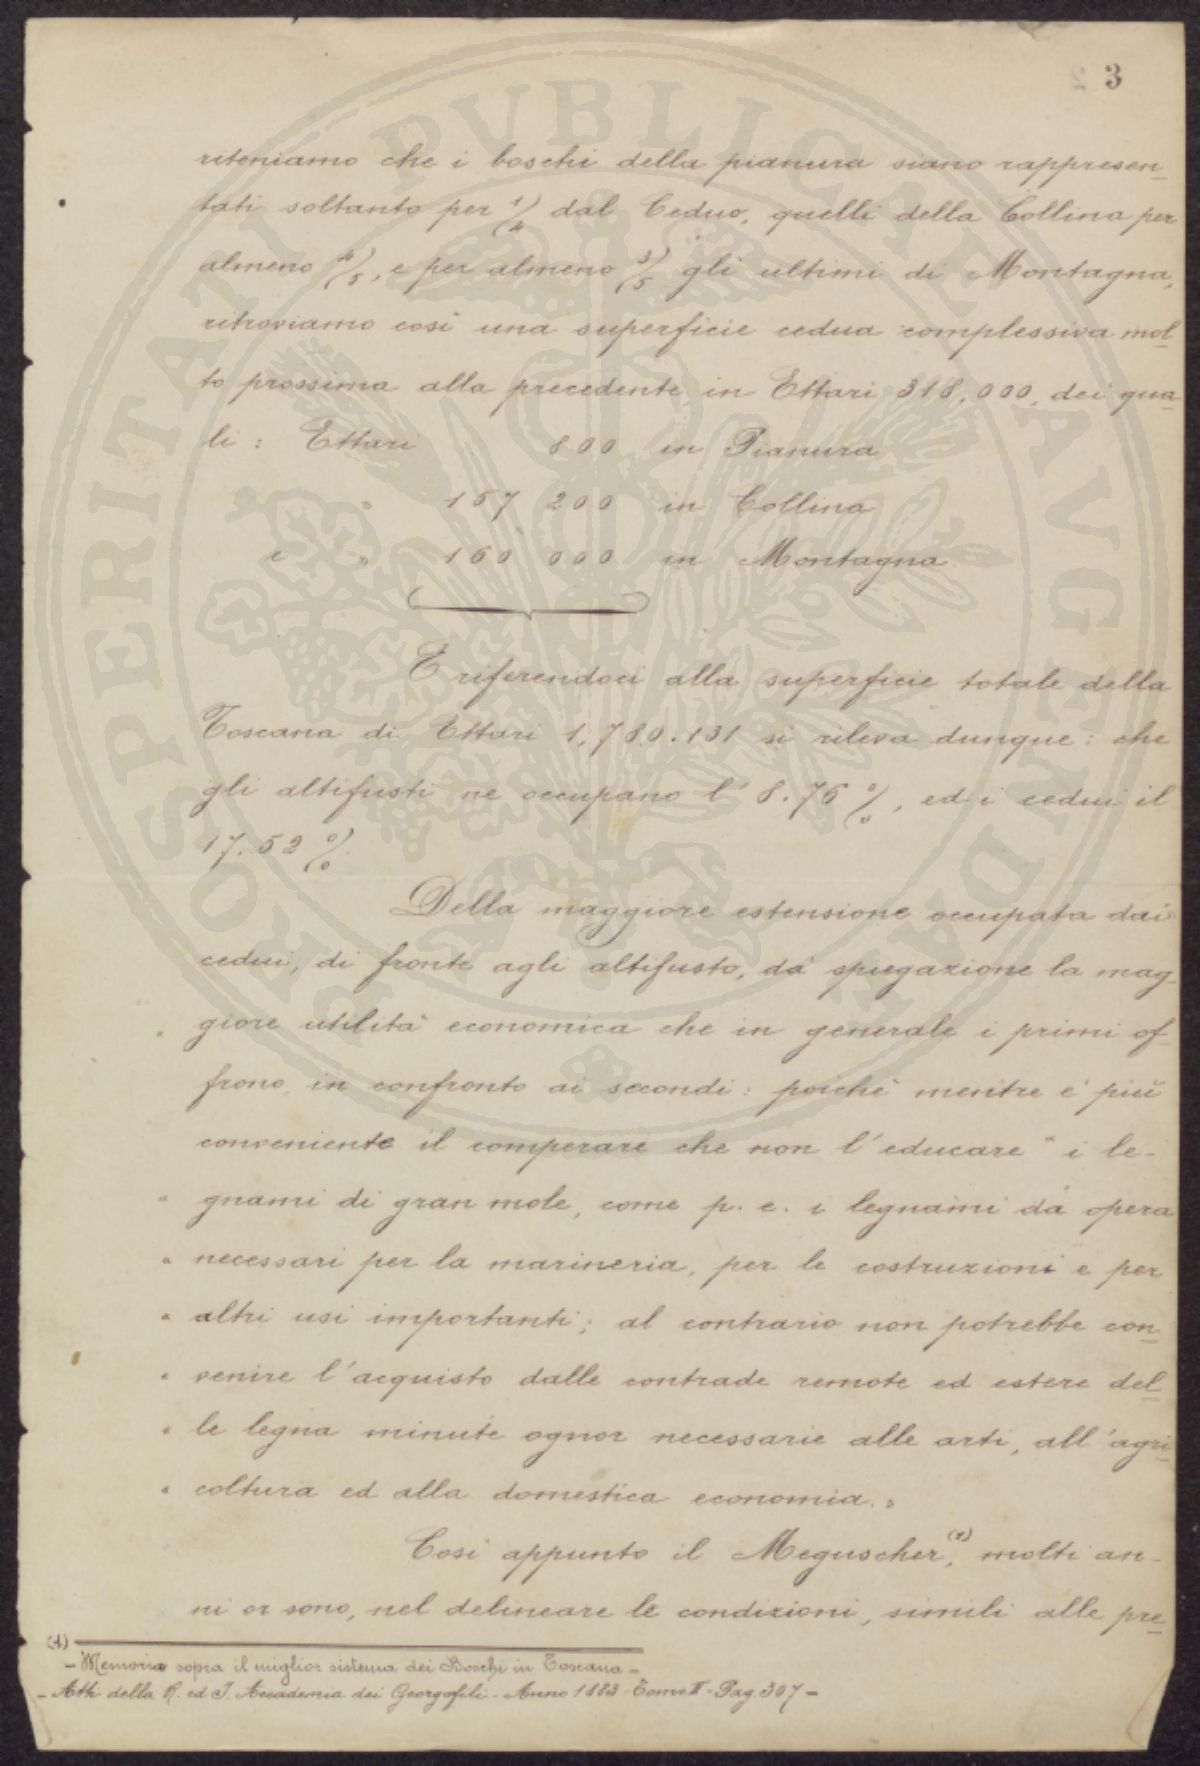 3
riteniamo che i boschi della pianura siano rappresen-
tati soltanto per 1/4 dal Ceduo, quelli della Collina per
almeno 4/5, e per almeno 3/5 gli ultimi di Montagna,
ritroviamo così una superficie cedua complessiva mol-
to prossima alla precedente in Ettari 318,000, dei qua-
li : Ettari 800 in Pianura
" 157 200 in Collina
e " 160 000 in Montagna
E riferendoci alla superficie totale della
Toscana di Ettari 1,780.131 si rileva dunque : che
gli altifusti ne occupano l' 8.76 %, ed i cedui il
17.52 %.
Della maggiore estensione occupata dai
cedui, di fronte agli altifusto, dà spiegazione la mag-
giore utilità economica che in generale i primi of-
frono in confronto ai secondi : poichè mentre è più
conveniente il comperare che non l'educare " i le-
" gnami di gran mole, come p. e. i legnami dà opera
" necessari per la marineria, per le costruzioni e per
" altri usi importanti ; al contrario non potrebbe con-
" venire l'acquisto dalle contrade remote ed estere del-
" le legna minute ognor necessarie alle arti, all'agri-
" coltura ed alla domestica economia. "
Così appunto il Meguscher (1), molti an-
ni or sono, nel delineare le condizioni, simili alle pre-
(1)
- Memoria sopra il miglior sistema dei Boschi in Toscana -
- Atti della R. ed I. Accademia dei Georgofili - Anno 1883 - Tomo II - Pag. 307 -
PROSPERITATI PVBLICAE AVGENDAE